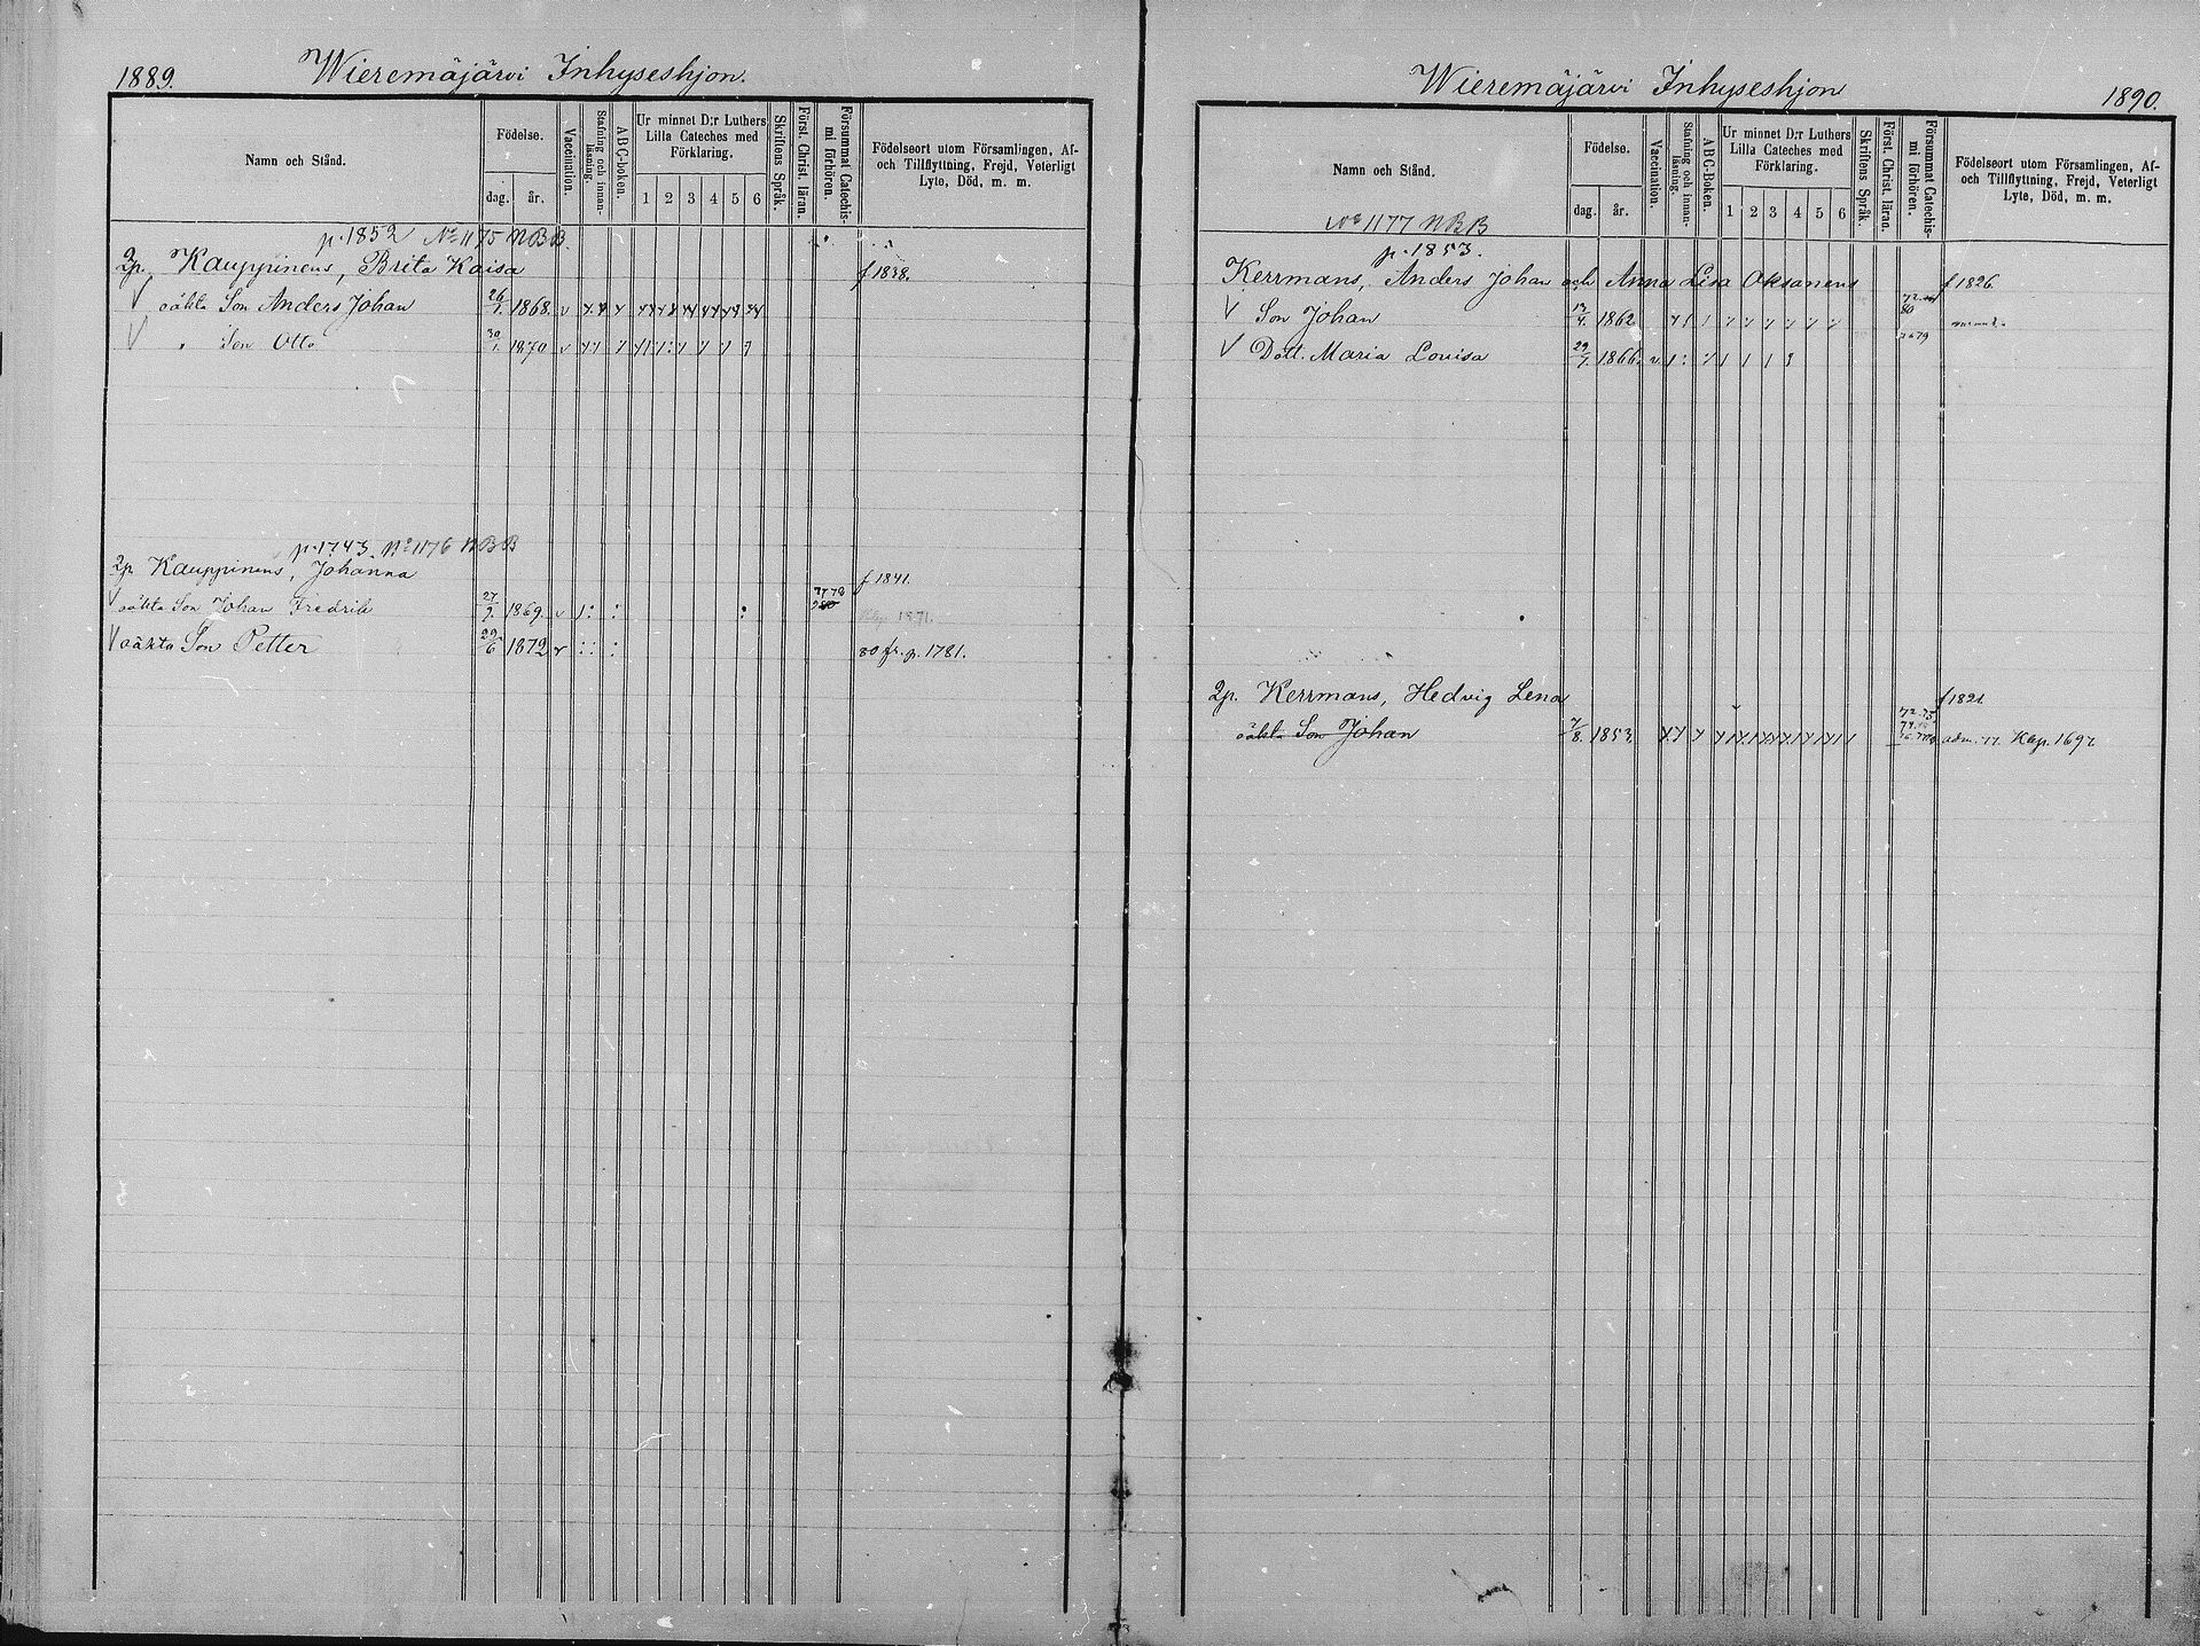 1889.
Wieremäjärvi Inhyseshjon.
Namn och Stånd.
Födelse.
dag.
år.
Vaccination.
Stafning och innanläsning.
ABC-boken.
Ur minnet D:r Luthers
Lilla Cateches med
Förklaring.
1 2 3 4 5 6
Skriftens Språk.
Först. Christ. läran.
Försummat Catechismi förhören.
Födelseort utom Församlingen, Af-
och Tillflyttning, Frejd, Veterligt
Lyte, Död, m. m.
p. 1852 No 1175 NBB.
Qp. Kauppinens, Brita Kaisa f 1838.
oäkta Son Anders Johan 26/1. 1868. v
" Son Otto 30/1. 1870 v
p. 1743. No 1176 NBB
Qp. Kauppinens, Johanna f 1841.
oäkta Son Johan Fredrik 27/9. 1869. v
oäkta Son Petter 29/6 1872 v 80 fr. p. 1781.
Wieremäjärvi Inhyseshjon
1890.
Namn och Stånd.
Födelse.
dag.
år.
Vaccination.
Stafning och innanläsning.
ABC-Boken.
Ur minnet D:r Luthers
Lilla Cateches med
Förklaring.
1 2 3 4 5 6
Skriftens Språk.
Först. Christ. läran.
Försummat Catechismi förhören.
Födelseort utom Församlingen, Af-
och Tillflyttning, Frejd, Veterligt
Lyte, Död, m. m.
No 1177 NBB
p. 1853.
Kerrmans, Anders Johan och Anna Lisa Oksanens f 1826.
Son Johan 13/4. 1862
Dott. Maria Lovisa 29/7. 1866. v
Qp. Kerrmans, Hedvig Lena f 1821.
oäkta Son Johan 7/8. 1853. adm. 77. Kbp. 1697.